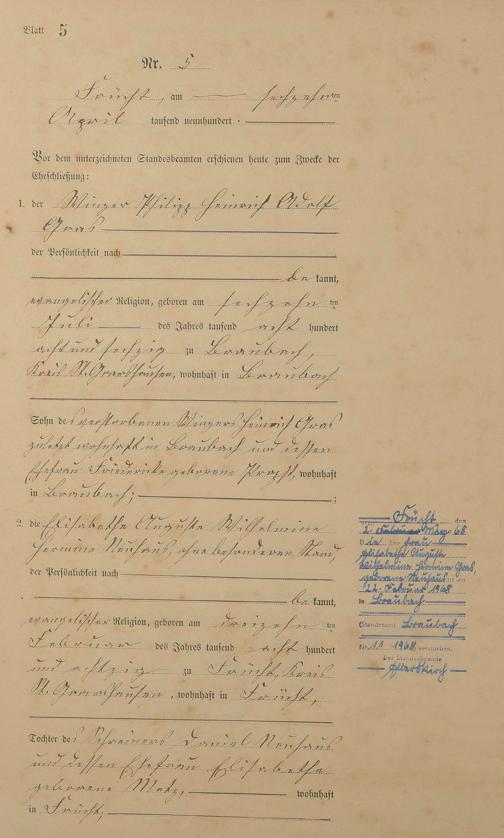 Blatt 5
Nr. 5
Frücht, am sechzehnten
April tausend neunhundert
Vor dem unterzeichneten Standesbeamten erschienen heute zum Zwecke der
Eheschließung:
1. der Winzer Philipp Heinrich Adolf
Gras
der Persönlichkeit nach
be kannt,
evangelischer Religion, geboren am sechzehnten
Juli des Jahres tausend acht hundert
acht und sechzig zu Braubach,
Kreis St. Goarshausen, wohnhaft in Braubach
Sohn des verstorbenen Winzers Heinrich Gras
zuletzt wohnhaft in Braubach und dessen
Ehefrau Friederike geborene Propst, wohnhaft
in Braubach;
2. die Elisabetha Auguste Wilhelmine
Hermine Neuhaus, ohne besonderen Stand
der Persönlichkeit nach
be kannt,
evangelischer Religion, geboren am dreizehn ten
Februar des Jahres tausend acht hundert
und achtzig zu Frücht, Kreis
St. Goarshausen, wohnhaft in Frücht,
Tochter des Schreiners Daniel Neuhaus
und dessen Ehefrau Elisabetha
geborene Metz, wohnhaft
in Frücht,
Frücht den
2. März 68
Die
Elisabetha Auguste
Wilhelmine Hermine Gras,
geborene Neuhaus ist am
22. Februar 1968
in Braubach
Standesamt Braubach
Nr. 11 1968 verstorben.
Der Standesbeamte